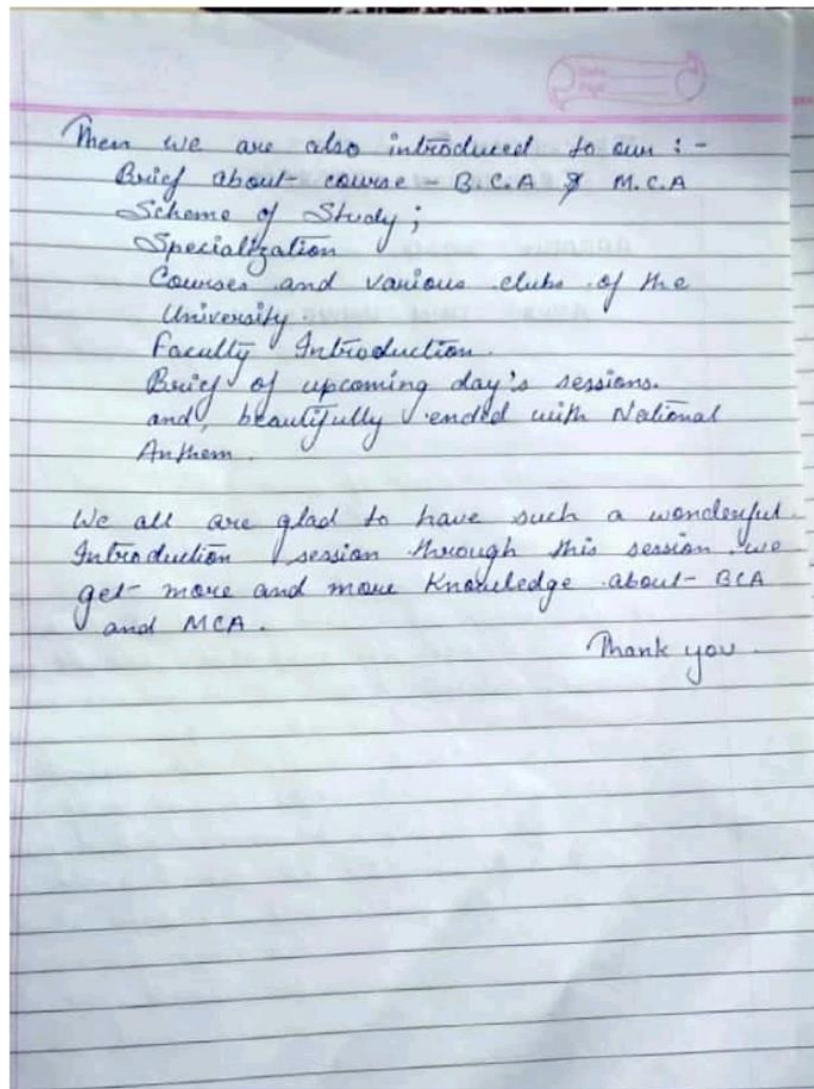 Then we are also introduced to our : -
Brief about course - B.C.A & M.C.A
Scheme of Study ;
Specialization
Courses and various clubs of the
University.
Faculty Introduction.
Brief of upcoming day's sessions.
and, beautifully ended with National
Anthem.
We all are glad to have such a wonderful
Introduction session through this session we
get more and more Knowledge about BCA
and MCA.
Thank you.